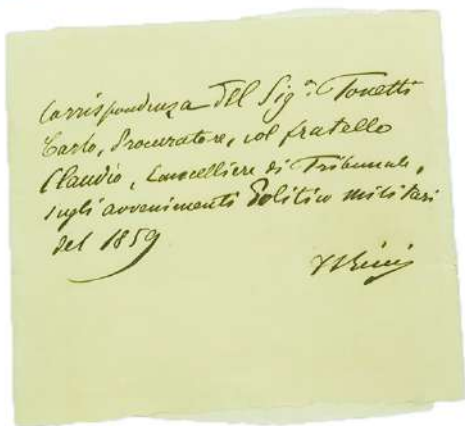 Corrispondenza del Sig.r Tonetti
Carlo, Procuratore, col fratello
Claudio, Cancelliere di Tribunale,
sugli avvenimenti Politico militari
del 1859